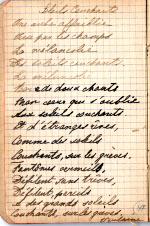 Soleils Couchants
Une aube affaiblie
Verse par les champs
La mélancolie
Des soleils couchants
La mélancolie
Berce de doux chants
Mon cœur qui s'oublie
Aux soleils couchants
Et d'étranges rêves,
Comme des soleils
Couchants, sur les grèves,
Fantômes vermeils,
Défilent, sans trêves,
Défilent, pareils
A des grands soleils
Couchants sur les grèves.
Verlaine